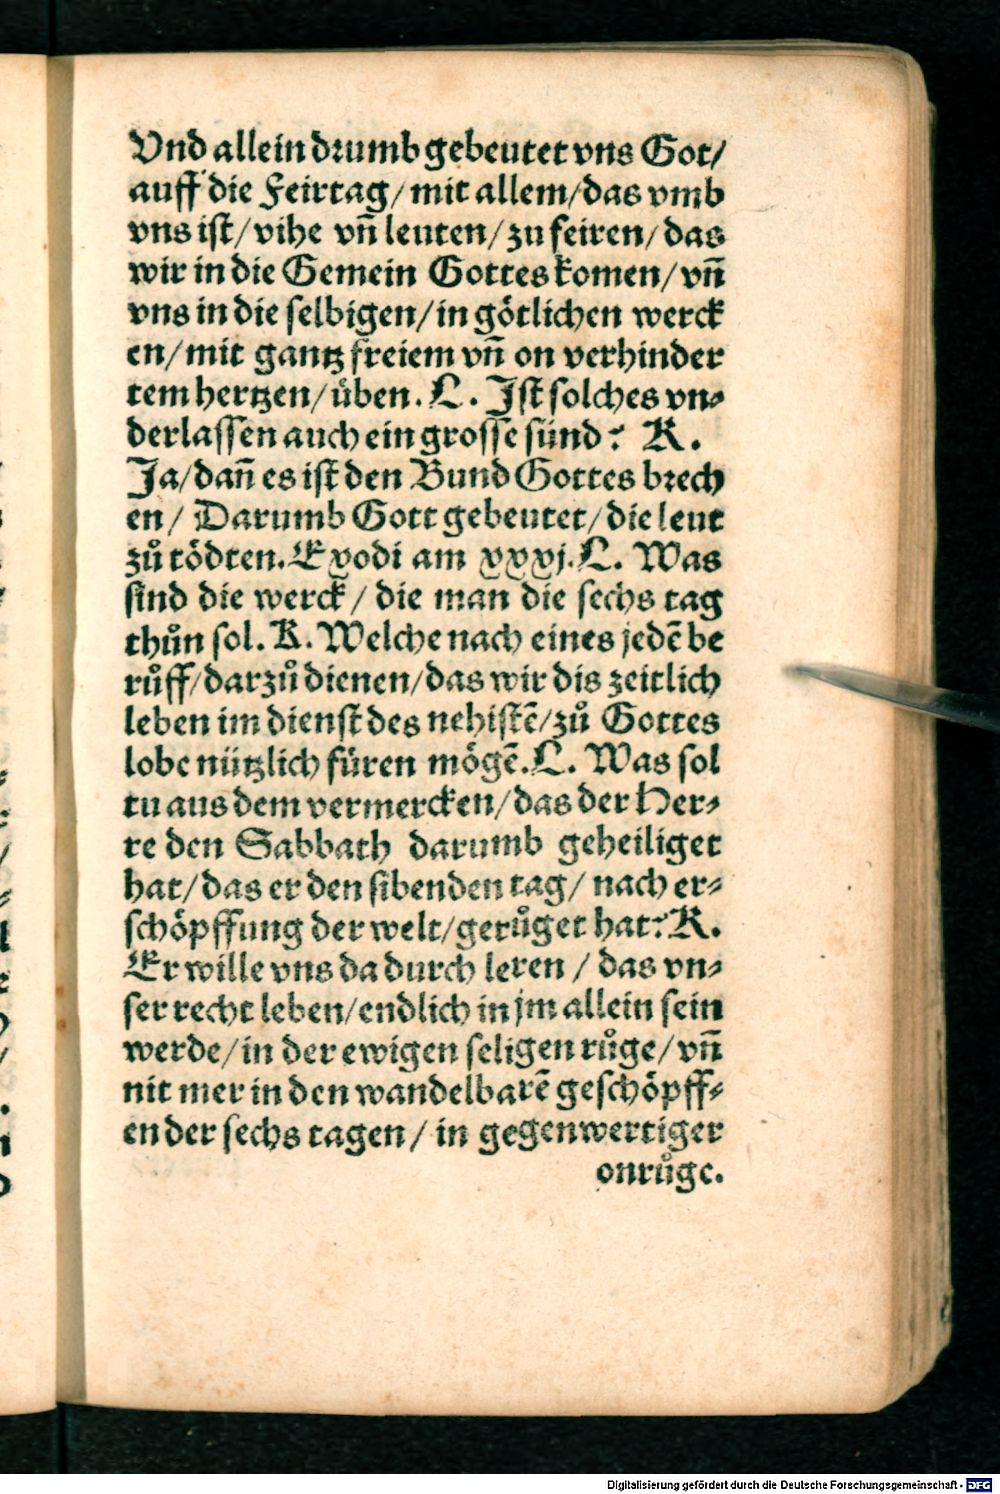 Vnd allein drumb gebeutet vns Got/
auff die Feirtag/mit allem/das vmb
vns ist/vihe vñ leuten/zu feiren/das
wir in die Gemein Gottes komen/vñ
vns in die selbigen/in götlichen werck
en/mit gantz freiem vñ on verhinder
tem hertzen/üben. L. Ist solches vn⸗
derlassen auch ein grosse sünd? K.
Ja/dañ es ist den Bund Gottes brech
en/ Darumb Gott gebeutet/die leut
zů tödten. Exodi am xxxj. L. Was
sind die werck/ die man die sechs tag
thůn sol. K. Welche nach eines jedē be
růff/darzů dienen/das wir dis zeitlich
leben im dienst des nehistē/zů Gottes
lobe nützlich füren mögē. L. Was sol
tu aus dem vermercken/das der Her⸗
re den Sabbath darumb geheiliget
hat/das er den sibenden tag/ nach er⸗
schöpffung der welt/gerůget hat? K.
Er wille vns da durch leren / das vn⸗
ser recht leben/endlich in jm allein sein
werde/in der ewigen seligen růge/vñ
nit mer in den wandelbarē geschöpff⸗
en der sechs tagen/ in gegenwertiger
onrůge.
Digitalisierung gefördert durch die Deutsche Forschungsgemeinschaft - DFG